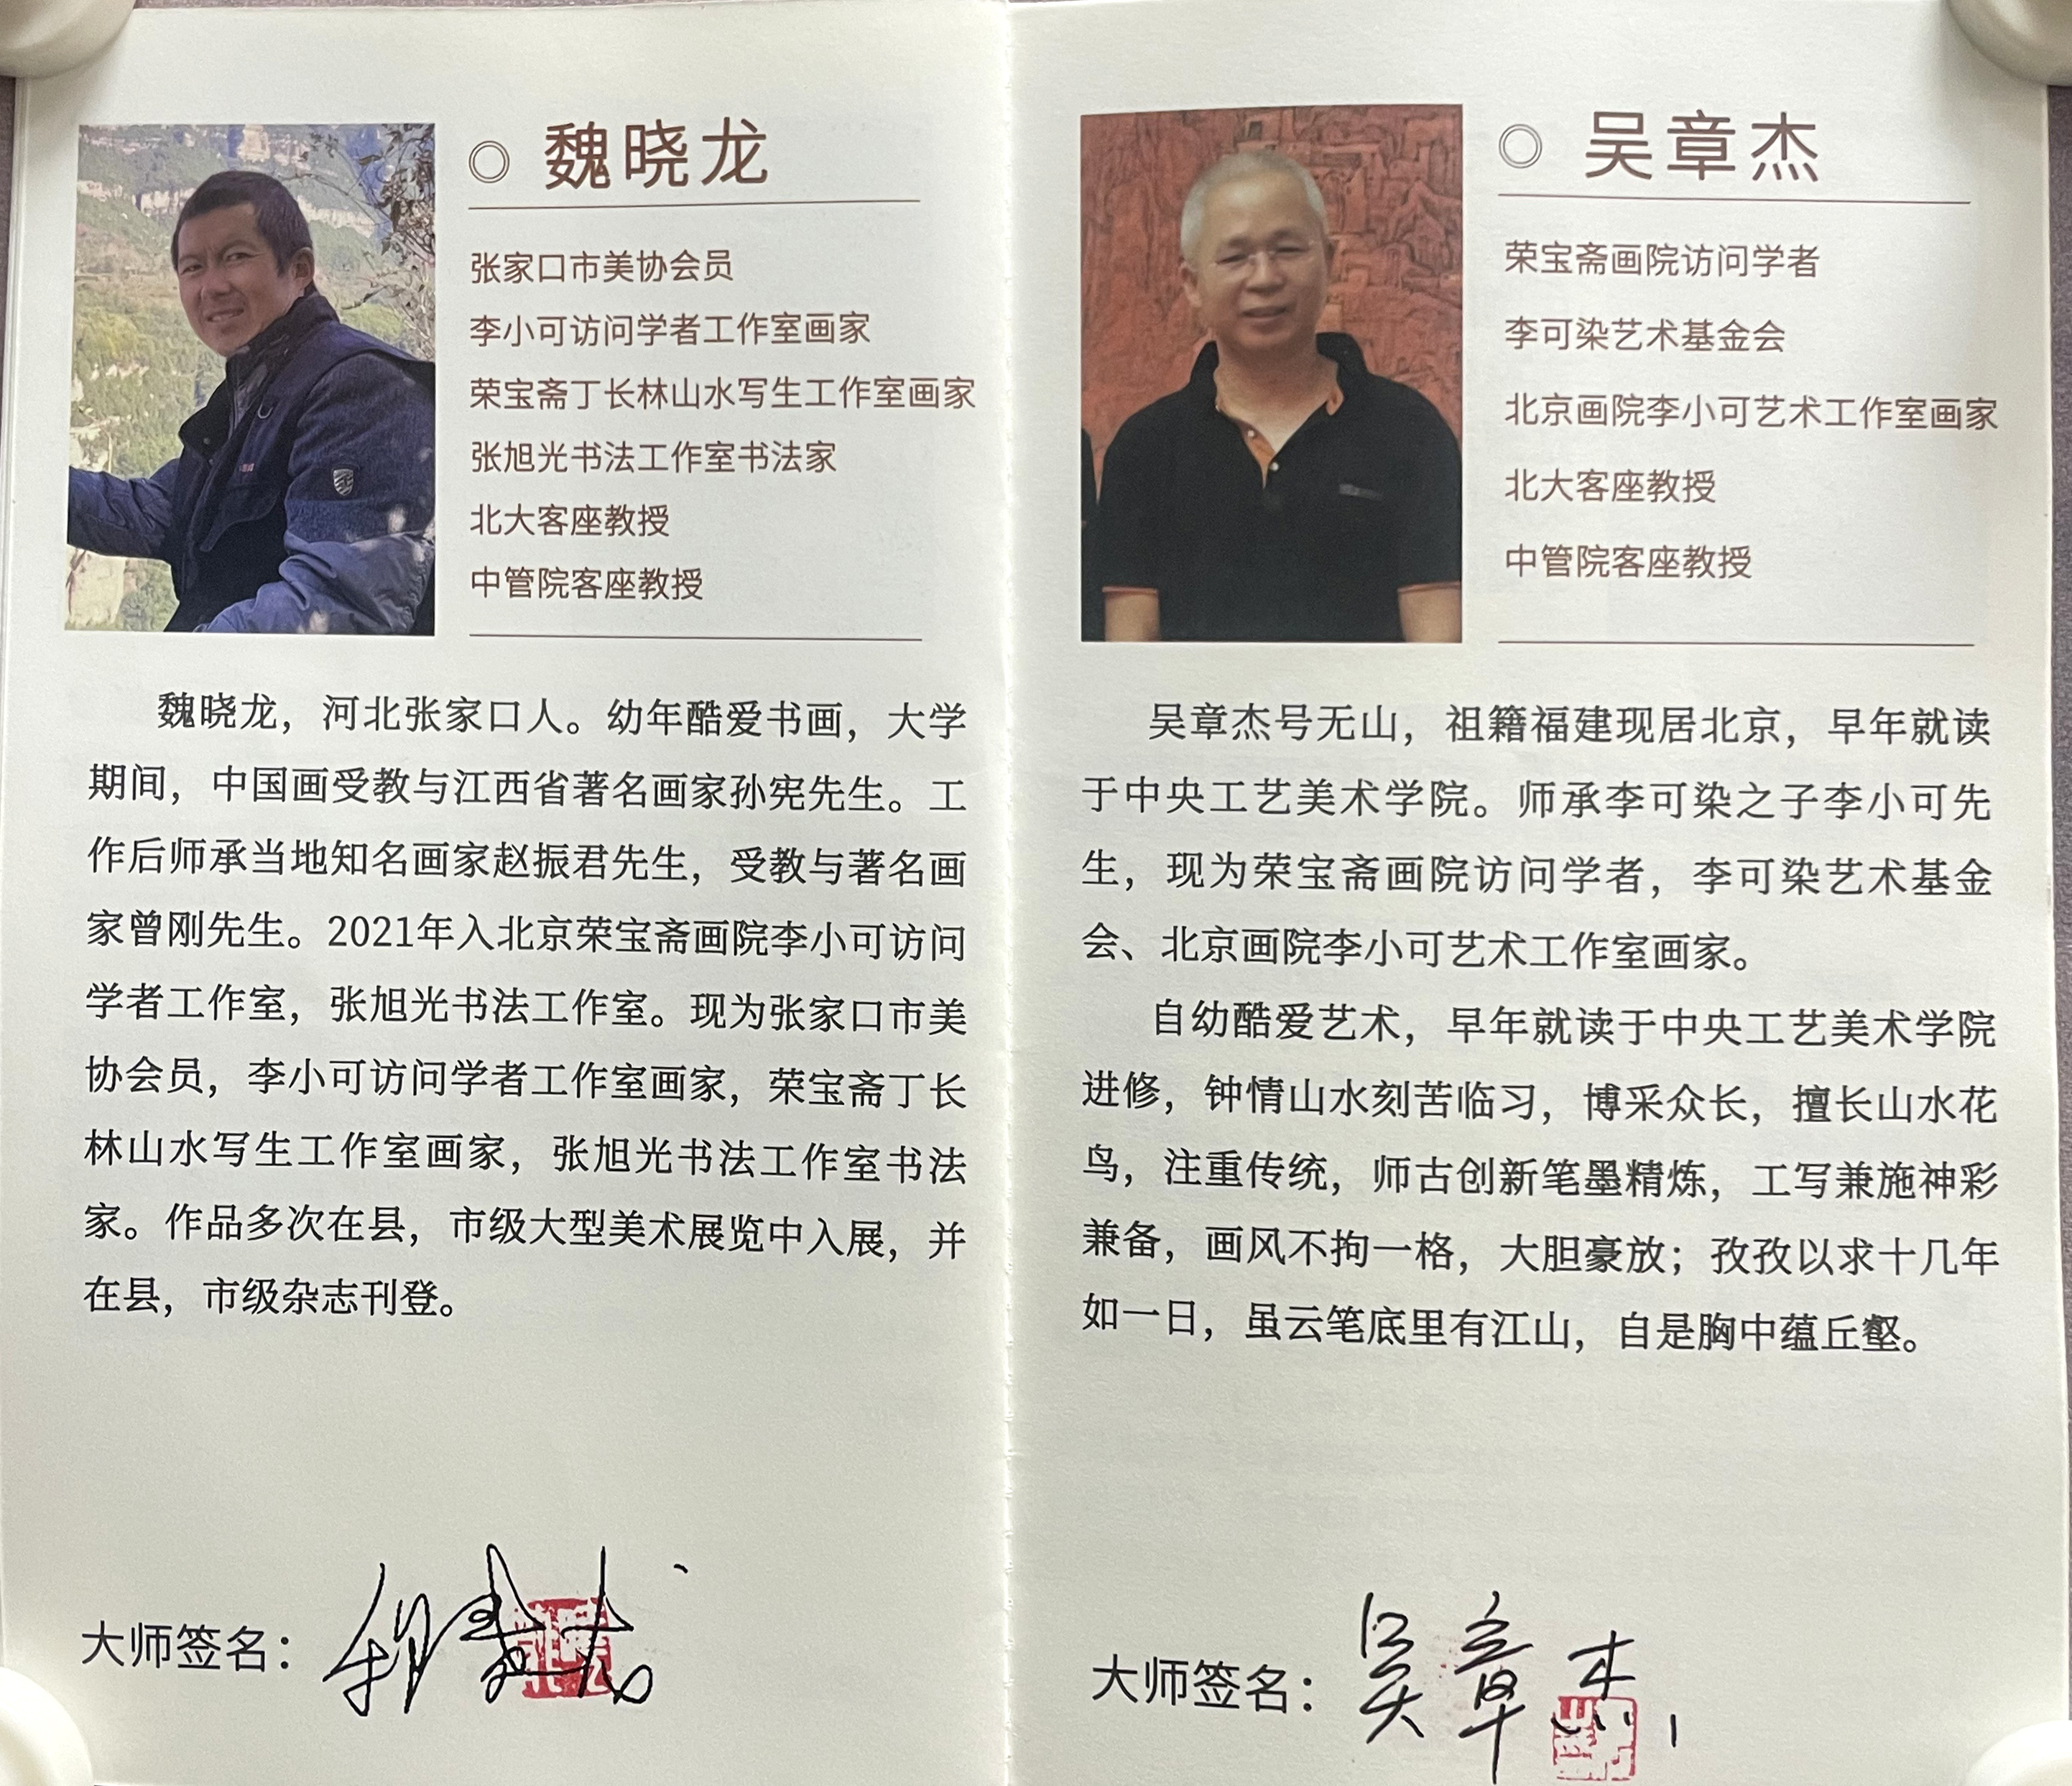 魏晓龙
张家口市美协会员
李小可访问学者工作室画家
荣宝斋丁长林山水写生工作室画家
张旭光书法工作室书法家
北大客座教授
中管院客座教授
魏晓龙，河北张家口人。幼年酷爱书画，大学
期间，中国画受教与江西省著名画家孙宪先生。工
作后师承当地知名画家赵振君先生，受教与著名画
家曾刚先生。2021年入北京荣宝斋画院李小可访问
学者工作室，张旭光书法工作室。现为张家口市美
协会员，李小可访问学者工作室画家，荣宝斋丁长
林山水写生工作室画家，张旭光书法工作室书法
家。作品多次在县，市级大型美术展览中入展，并
在县，市级杂志刊登。
大师签名：
吴章杰
荣宝斋画院访问学者
李可染艺术基金会
北京画院李小可艺术工作室画家
北大客座教授
中管院客座教授
吴章杰号无山，祖籍福建现居北京，早年就读
于中央工艺美术学院。师承李可染之子李小可先
生，现为荣宝斋画院访问学者，李可染艺术基金
会、北京画院李小可艺术工作室画家。
自幼酷爱艺术，早年就读于中央工艺美术学院
进修，钟情山水刻苦临习，博采众长，擅长山水花
鸟，注重传统，师古创新笔墨精炼，工写兼施神彩
兼备，画风不拘一格，大胆豪放；孜孜以求十几年
如一日，虽云笔底里有江山，自是胸中蕴丘壑。
大师签名：吴章杰